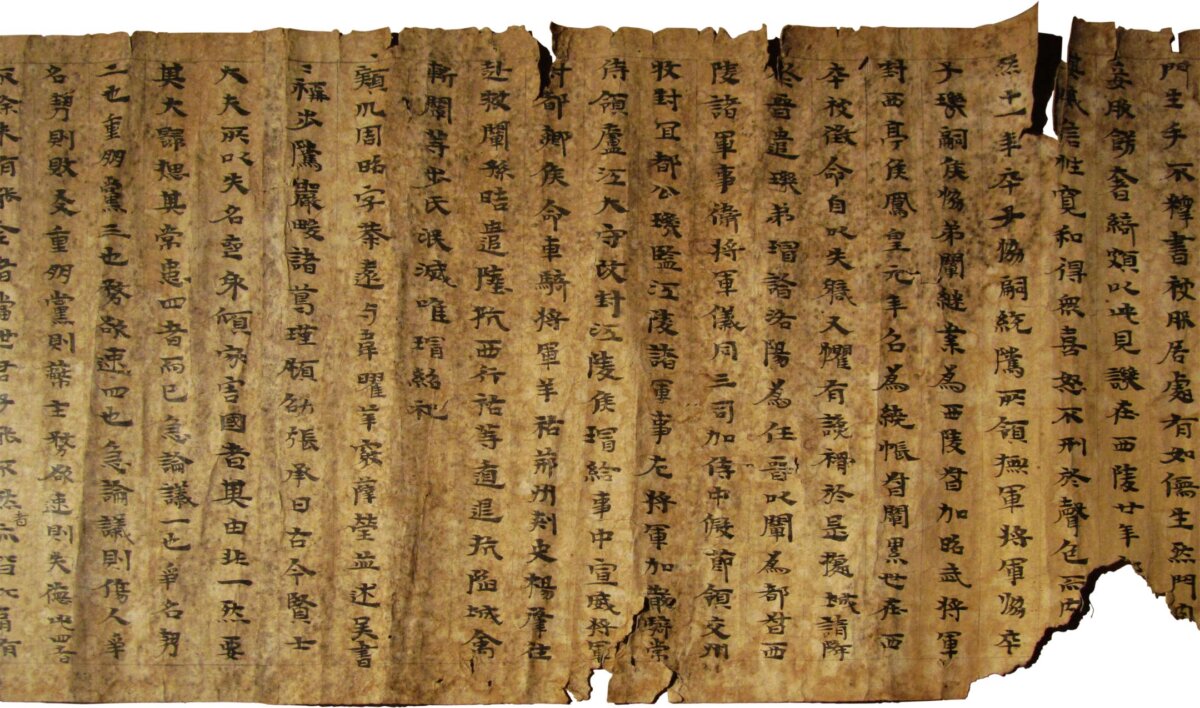 門生手不釋書被服居處有如儒生然門內
妻服飾奢綺頗以此見譏在西陵廿年
威信性寬和得無喜怒不刑於聲色而內
十一年卒子協嗣統騭所領撫軍將軍協卒
子璣嗣侯協弟闡継業為西陵督加昭武將軍
封西亭侯鳳皇元年召為繞帳督闡累世在西
卒被徵命自以失職又懼有讒禍於是據城請降
於晉遣璣弟璿詣洛陽為任晉以闡為都督西
陵諸軍事衛將軍儀同三司加侍中假節領交州
牧封宜都公璣監江陵諸軍事左將軍加散騎常
侍領廬江大守改封江陵侯璿給事中宣威將軍
封都鄉侯命車騎將軍羊祜荊州刾史楊肇往
赴救闡孫晧遣陸抗西行祜等遁退抗陷城禽
斬闡等步氏泯滅唯璿紹祀
潁川周昭字恭遠与韋曜華覈薛瑩並述吳書
步騭嚴畯諸葛瑾顧劭張承曰古今賢士
大夫所以失名喪身傾家害國者其由非一然要
其大歸揔其常患四者而已急論議一也爭名勢
二也重朋黨三也務欲速四也急論議則傷人爭
名勢則敗友重朋黨則蔽主務欲速則失德此四者
不除未有能全者當世君子能不然者亦皆